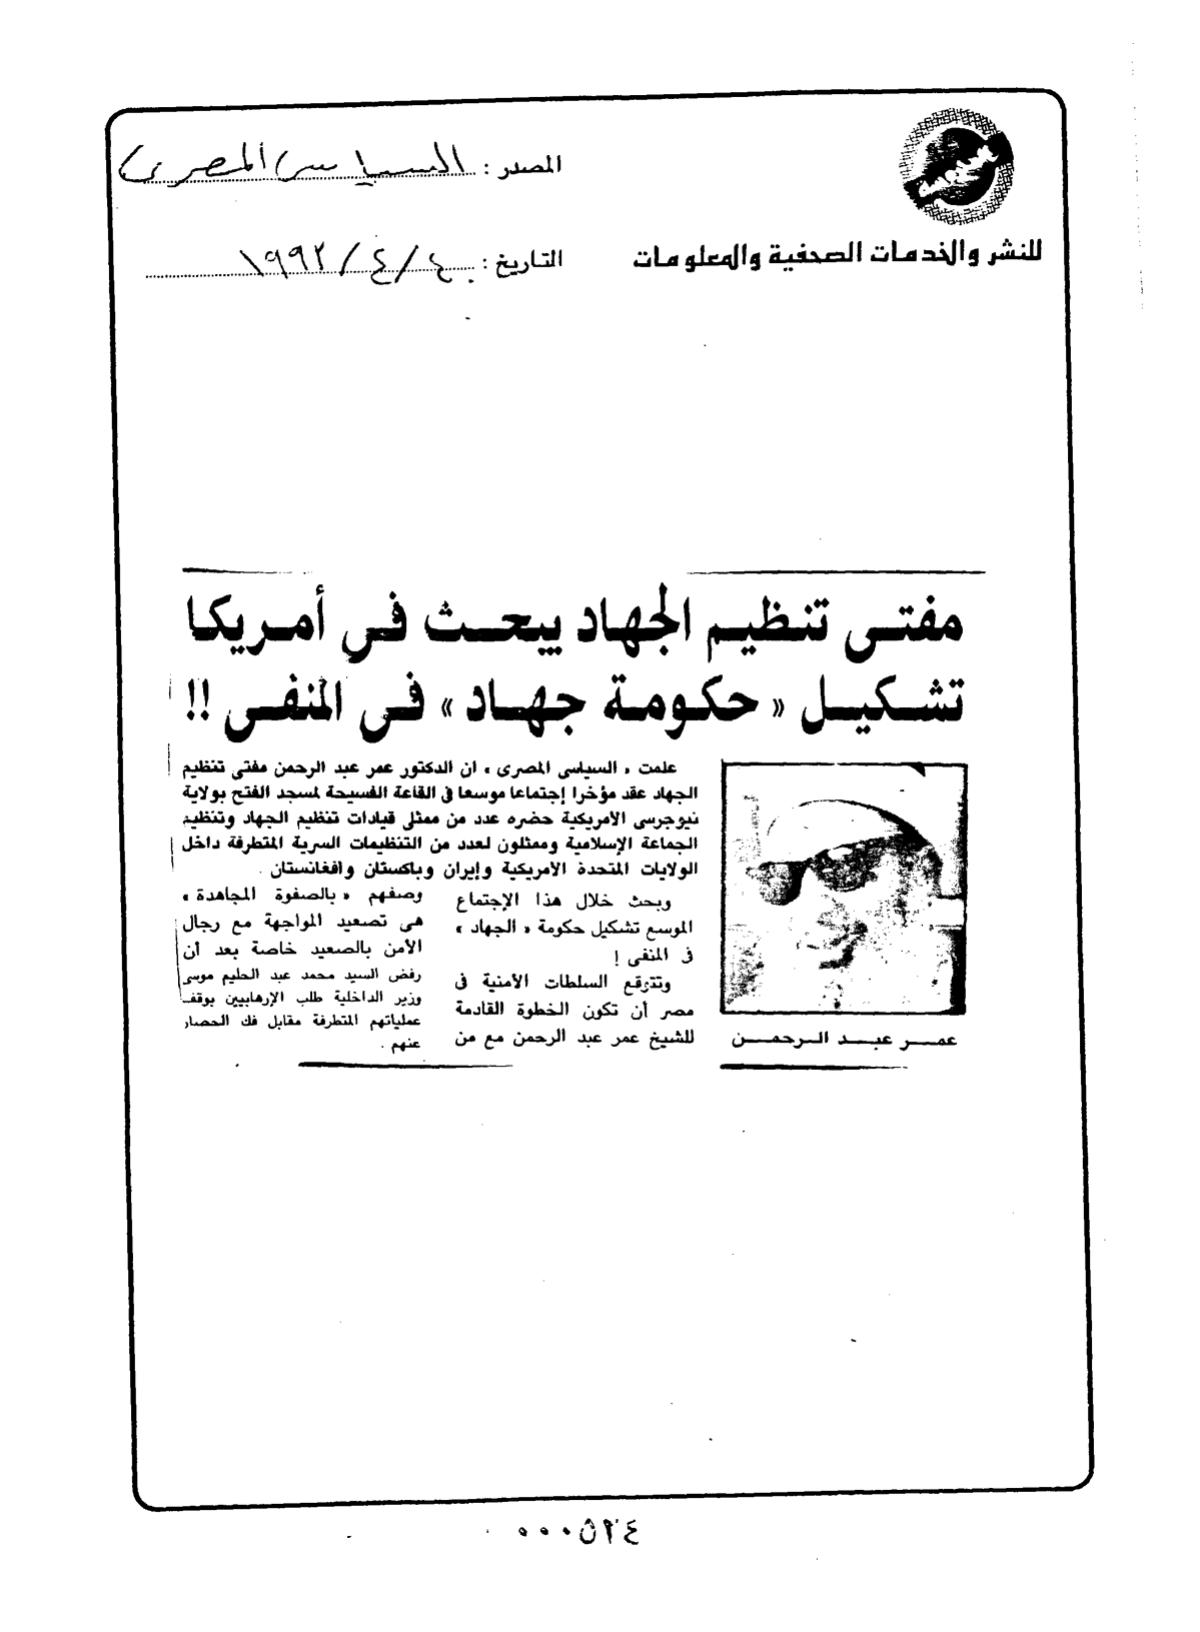 المصدر : السياسى المصرى
للنشر والخدمات الصحفية والمعلومات
التاريخ : ٤ / ٤ / ١٩٩٢
مفتـى تنظيم الجهاد يبحث في أمريكا
تشكيل « حكومة جهاد » فى المنفى !!
علمت « السياسى المصرى » ان الدكتور عمر عبد الرحمن مفتى تنظيم
الجهاد عقد مؤخرا إجتماعا موسعا فى القاعة الفسيحة لمسجد الفتح بولاية
نيوجرسى الأمريكية حضره عدد من ممثلى قيادات تنظيم الجهاد وتنظيم
الجماعة الإسلامية وممثلون لعدد من التنظيمات السرية المتطرفة داخل
الولايات المتحدة الأمريكية وإيران وباكستان وافغانستان .
وبحث خلال هذا الإجتماع
الموسع تشكيل حكومة « الجهاد »
فى المنفى !
وتترقع السلطات الأمنية فى
مصر أن تكون الخطوة القادمة
للشيخ عمر عبد الرحمن مع من
وصفهم « بالصفوة المجاهدة »
هى تصعيد المواجهة مع رجال
الأمن بالصعيد خاصة بعد أن
رفض السيد محمد عبد الحليم موسى
وزير الداخلية طلب الإرهابيين بوقف
عملياتهم المتطرفة مقابل فك الحصار
عنهم .
عمـر عبـد الـرحمـن
٠٠٠٥٢٤